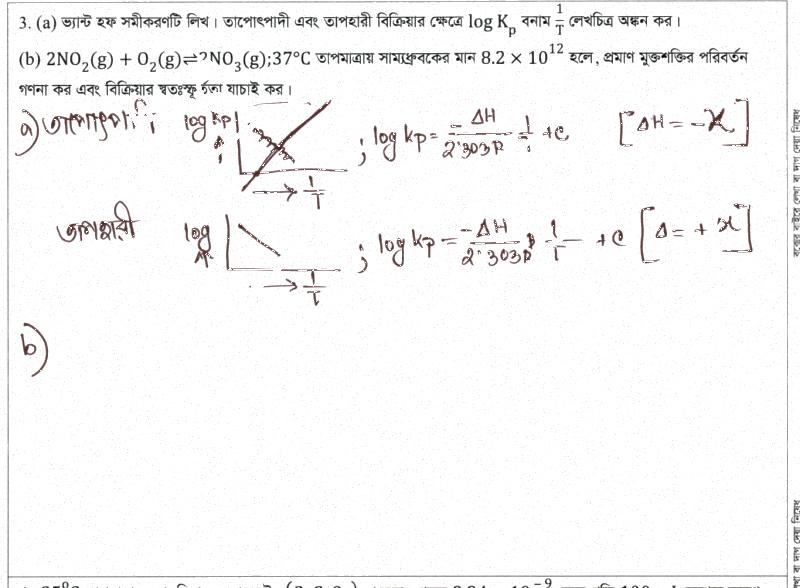 3. (a) ভ্যান্ট হফ সমীকরণটি লিখ। তাপোৎপাদী এবং তাপহারী বিক্রিয়ার ক্ষেত্রে log Kp বনাম 1/T লেখচিত্র অঙ্কন কর।
(b) 2NO₂(g) + O₂(g)⇌2NO₃(g);37°C তাপমাত্রায় সাম্যধ্রুবকের মান 8.2 × 10¹² হলে, প্রমাণ মুক্তশক্তির পরিবর্তন
গণনা কর এবং বিক্রিয়ার স্বতঃস্ফূর্ততা যাচাই কর।
a) log Kp ; log Kp = -ΔH/2.303R 1/T + C [ΔH = -x]
→ 1/T
তাপহারী log ; log Kp = -ΔH/2.303R 1/T + C [Δ = + x]
→ 1/T
b)